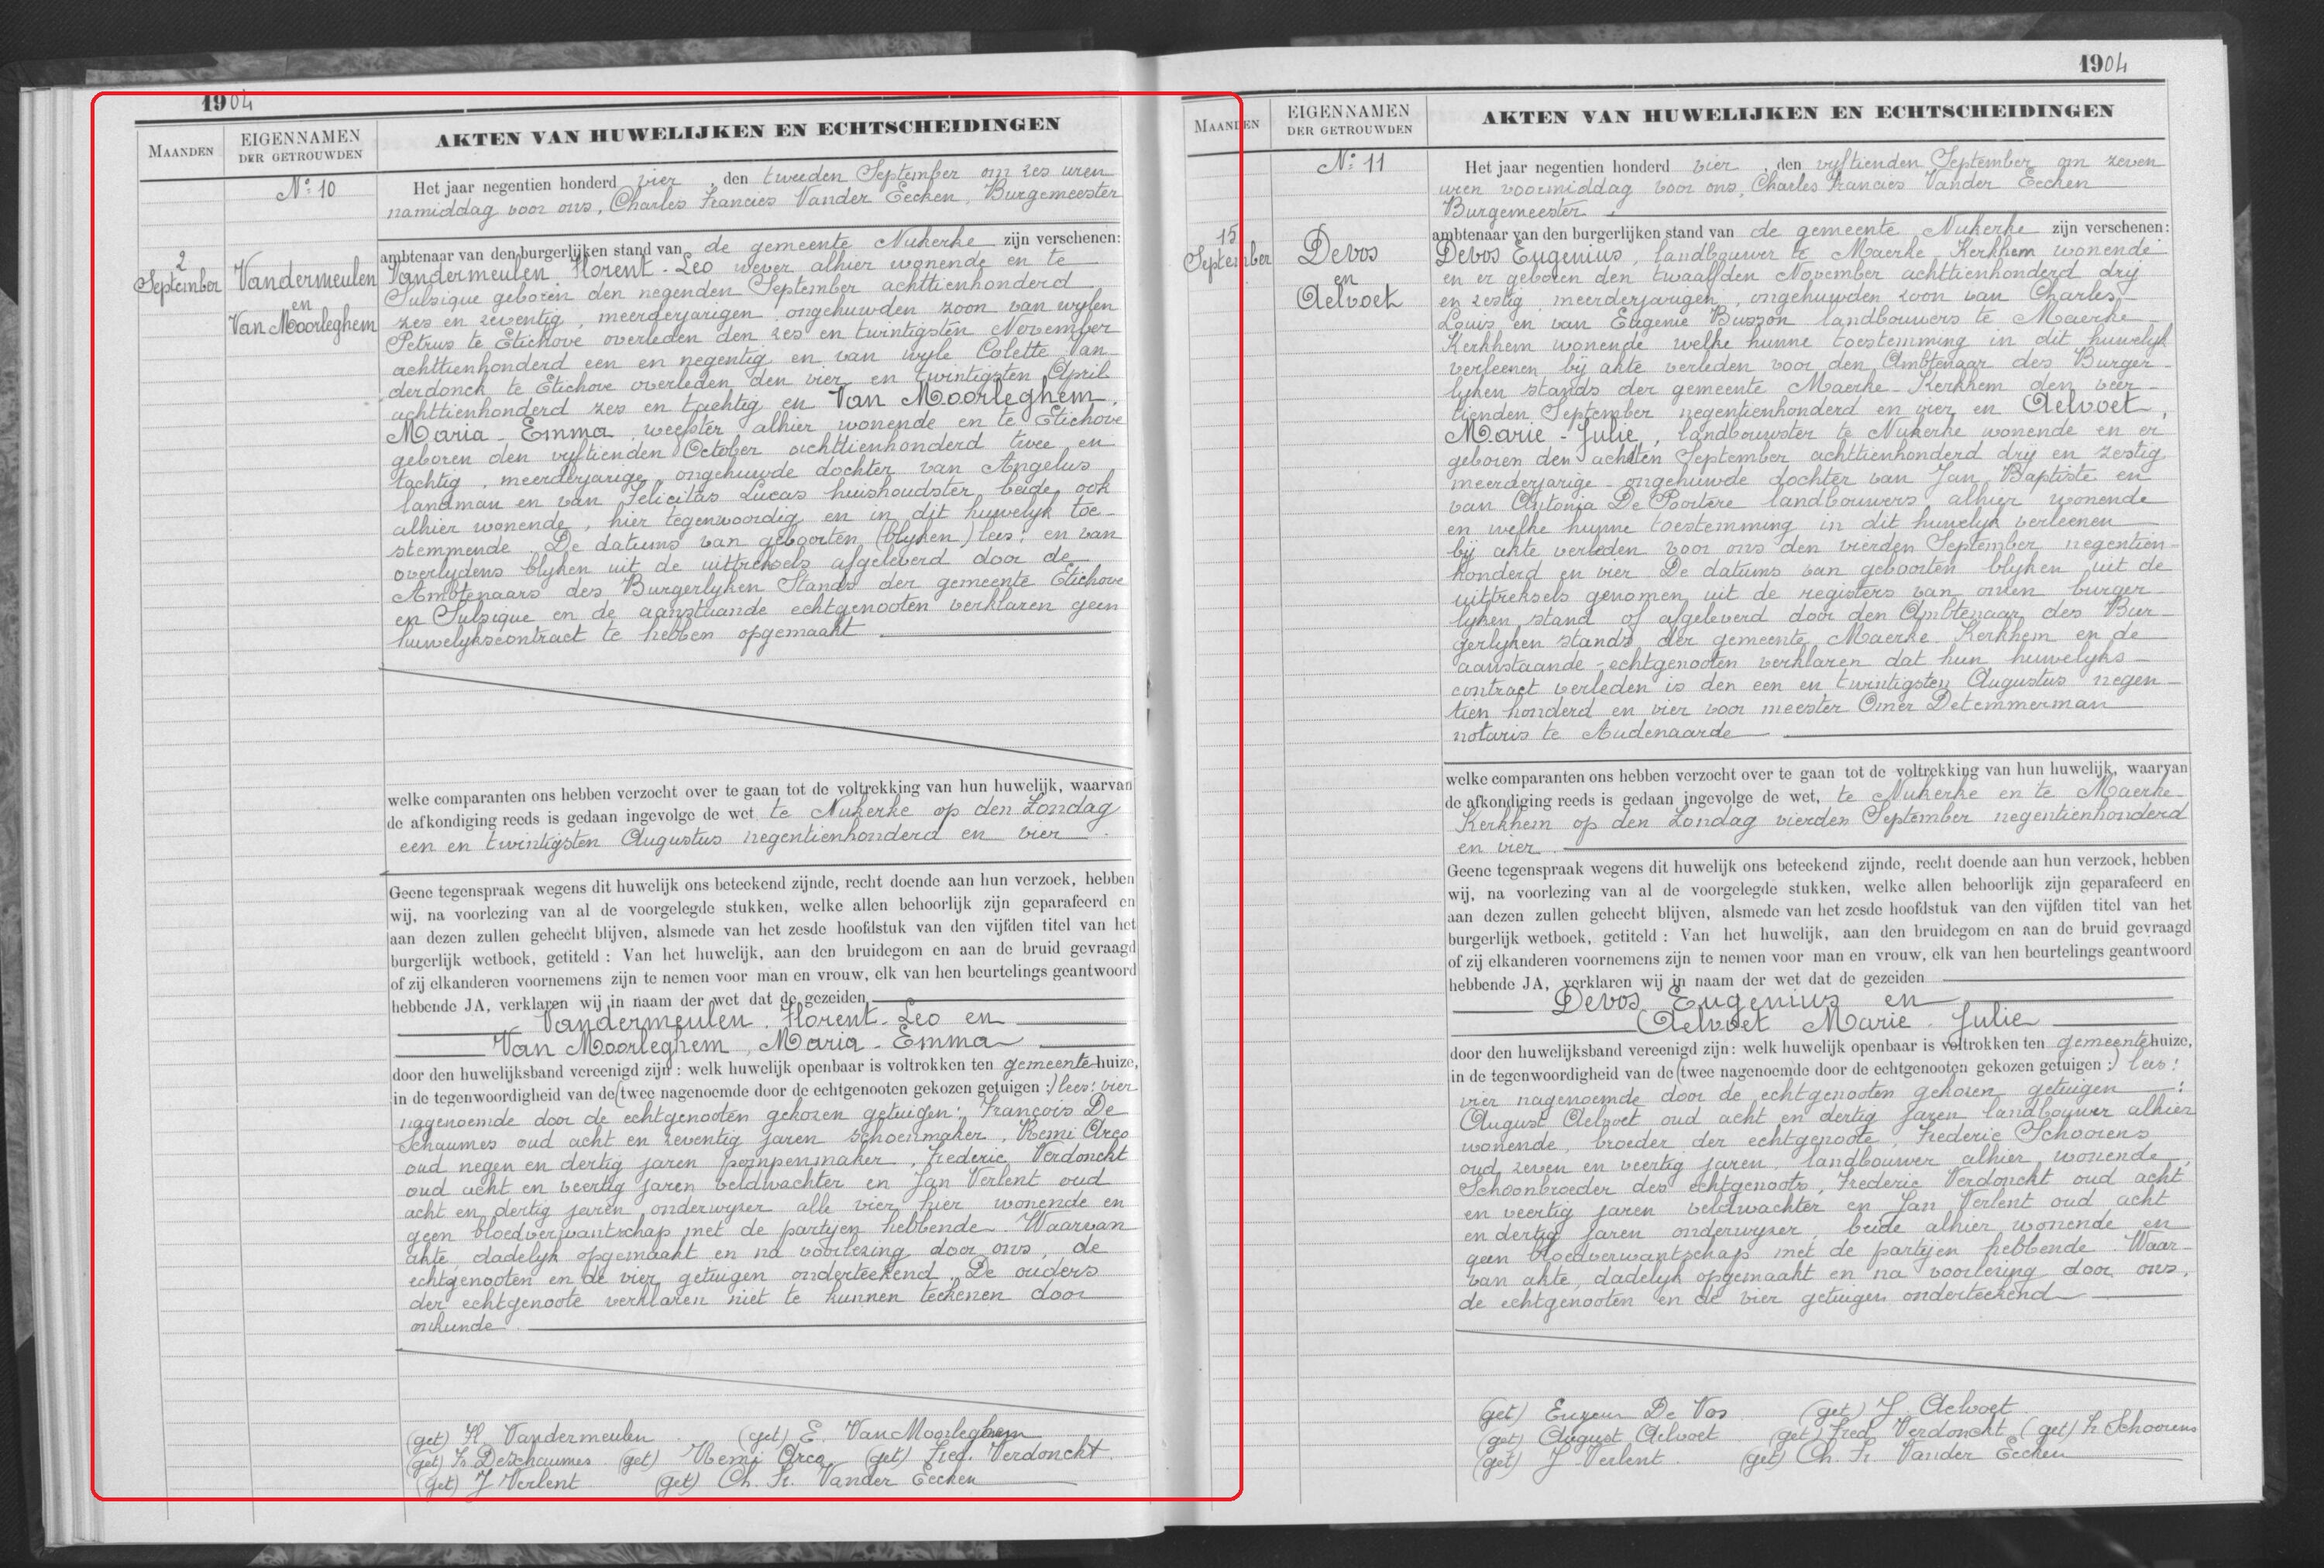 1904
MAANDEN
EIGENNAMEN
DER GETROUWDEN
AKTEN VAN HUWELIJKEN EN ECHTSCHEIDINGEN
No 10
2
September
Vandermeulen
en
Van Moorleghem
Het jaar negentien honderd vier, den tweeden September om zes uren
namiddag voor ons, Charles Francies Vander Eecken, Burgemeester
ambtenaar van den burgerlijken stand van de gemeente Nukerke zijn verschenen:
Vandermeulen Florent-Leo wever alhier wonende en te
Sulsique geboren den negenden September achttienhonderd
zes en zeventig, meerderjarigen ongehuwden zoon van wylen
Petrus te Etichove overleden den zes en twintigsten November
achttienhonderd een en negentig en van wyle Colette Van
derdonck te Etichove overleden den vier en twintigsten April
achttienhonderd zes en tachtig en Van Moorleghem,
Maria-Emma, weefster alhier wonende en te Etichove
geboren den vyftienden October achttienhonderd twee en
tachtig, meerderjarige ongehuwde dochter van Angelus
landman en van Felicitas Lucas huishoudster beide ook
alhier wonende, hier tegenwoordig en in dit huwelyk toe-
stemmende. De datums van geboorten (blyken) lees: en van
overlydens blyken uit de uittreksels afgeleverd door de
Ambtenaars des Burgerlyken Stands der gemeente Etichove
en Sulsique en de aanstaande echtgenooten verklaren geen
huwelykscontract te hebben opgemaakt
welke comparanten ons hebben verzocht over te gaan tot de voltrekking van hun huwelijk, waarvan
de afkondiging reeds is gedaan ingevolge de wet te Nukerke op den Zondag
een en twintigsten Augustus negentienhonderd en vier.
Geene tegenspraak wegens dit huwelijk ons beteekend zijnde, recht doende aan hun verzoek, hebben
wij, na voorlezing van al de voorgelegde stukken, welke allen behoorlijk zijn geparafeerd en
aan dezen zullen gehecht blijven, alsmede van het zesde hoofdstuk van den vijfden titel van het
burgerlijk wetboek, getiteld : Van het huwelijk, aan den bruidegom en aan de bruid gevraagd
of zij elkanderen voornemens zijn te nemen voor man en vrouw, elk van hen beurtelings geantwoord
hebbende JA, verklaren wij in naam der wet dat de gezeiden
Vandermeulen, Florent-Leo en
Van Moorleghem, Maria-Emma
door den huwelijksband vereenigd zijn : welk huwelijk openbaar is voltrokken ten gemeentehuize,
in de tegenwoordigheid van de (twee nagenoemde door de echtgenooten gekozen getuigen :) lees: vier
nagenoemde door de echtgenooten gekozen getuigen: François De
Schaumes oud acht en zeventig jaren schoenmaker, Remi Arco
oud negen en dertig jaren pompenmaker, Frederic Verdonckt
oud acht en veertig jaren veldwachter en Jan Verlent oud
acht en dertig jaren onderwyzer alle vier hier wonende en
geen bloedverwantschap met de partyen hebbende. Waarvan
akte, dadelyk opgemaakt en na voorlezing door ons, de
echtgenooten en de vier getuigen onderteekend. De ouders
der echtgenoote verklaren niet te kunnen teekenen door
onkunde.
(get) Fl. Vandermeulen (get) E. Van Moorleghem
(get) Fr. DeSchaumes (get) Remi Arco (get) Fred. Verdonckt.
(get) J Verlent (get) Ch. Fr. Vander Eecken
1904
MAANDEN
EIGENNAMEN
DER GETROUWDEN
AKTEN VAN HUWELIJKEN EN ECHTSCHEIDINGEN
No 11
15
September
Devos
en
Aelvoet
Het jaar negentien honderd vier, den vyftienden September om zeven
uren voormiddag voor ons, Charles Francies Vander Eecken
Burgemeester,
ambtenaar van den burgerlijken stand van de gemeente Nukerke zijn verschenen:
Devos Eugenius, landbouwer te Maerke-Kerkhem wonende
en er geboren den twaalfden November achttienhonderd dry
en zestig meerderjarigen, ongehuwden zoon van Charles-
Louis en van Eugenie Busson landbouwers te Maerke-
Kerkhem wonende welke hunne toestemming in dit huwelyk
verleenen bij akte verleden voor den Ambtenaar des Burger-
lyken stands der gemeente Maerke-Kerkhem den veer-
tienden September negentienhonderd en vier en Aelvoet,
Marie-Julie, landbouwster te Nukerke wonende en er
geboren den achsten September achttienhonderd dry en zestig
meerderjarige ongehuwde dochter van Jan Baptiste en
van Antonia De Poortere landbouwers alhier wonende
en welke hunne toestemming in dit huwelyk verleenen
bij akte verleden voor ons den vierden September negentien-
honderd en vier. De datums van geboorten blyken uit de
uittreksels genomen uit de registers van onzen burger-
lyken stand of afgeleverd door den Ambtenaar des Bur-
gerlyken stands der gemeente Maerke-Kerkhem en de
aanstaande-echtgenooten verklaren dat hun huwelyks-
contract verleden is den een en twintigsten Augustus negen-
tien honderd en vier voor meester Omer Detemmerman
notaris te Audenaarde
welke comparanten ons hebben verzocht over te gaan tot de voltrekking van hun huwelijk, waarvan
de afkondiging reeds is gedaan ingevolge de wet, te Nukerke en te Maerke-
Kerkhem op den Zondag vierden September negentienhonderd
en vier.
Geene tegenspraak wegens dit huwelijk ons beteekend zijnde, recht doende aan hun verzoek, hebben
wij, na voorlezing van al de voorgelegde stukken, welke allen behoorlijk zijn geparafeerd en
aan dezen zullen gehecht blijven, alsmede van het zesde hoofdstuk van den vijfden titel van het
burgerlijk wetboek, getiteld : Van het huwelijk, aan den bruidegom en aan de bruid gevraagd
of zij elkanderen voornemens zijn te nemen voor man en vrouw, elk van hen beurtelings geantwoord
hebbende JA, verklaren wij in naam der wet dat de gezeiden
Devos Eugenius en
Aelvoet Marie-Julie
door den huwelijksband vereenigd zijn : welk huwelijk openbaar is voltrokken ten gemeentehuize,
in de tegenwoordigheid van de (twee nagenoemde door de echtgenooten gekozen getuigen :) lees:
vier nagenoemde door de echtgenooten gekozen getuigen:
August Aelvoet oud acht en dertig jaren landbouwer alhier
wonende, broeder der echtgenoote, Frederic Schoorens
oud zeven en veertig jaren, landbouwer alhier wonende,
Schoonbroeder des echtgenoots, Frederic Verdonckt oud acht
en veertig jaren veldwachter en Jan Verlent oud acht
en dertig jaren onderwyzer, beide alhier wonende en
geen bloedverwantschap met de partijen hebbende. Waar-
van akte, dadelyk opgemaakt en na voorlezing door ons,
de echtgenooten en de vier getuigen onderteekend
(get) Eugeen De Vos (get) J. Aelvoet
(get) August Aelvoet (get) Fred. Verdonckt (get) Fr Schoorens
(get) J Verlent. (get) Ch. Fr. Vander Eecken